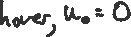 hover, u₀ = 0